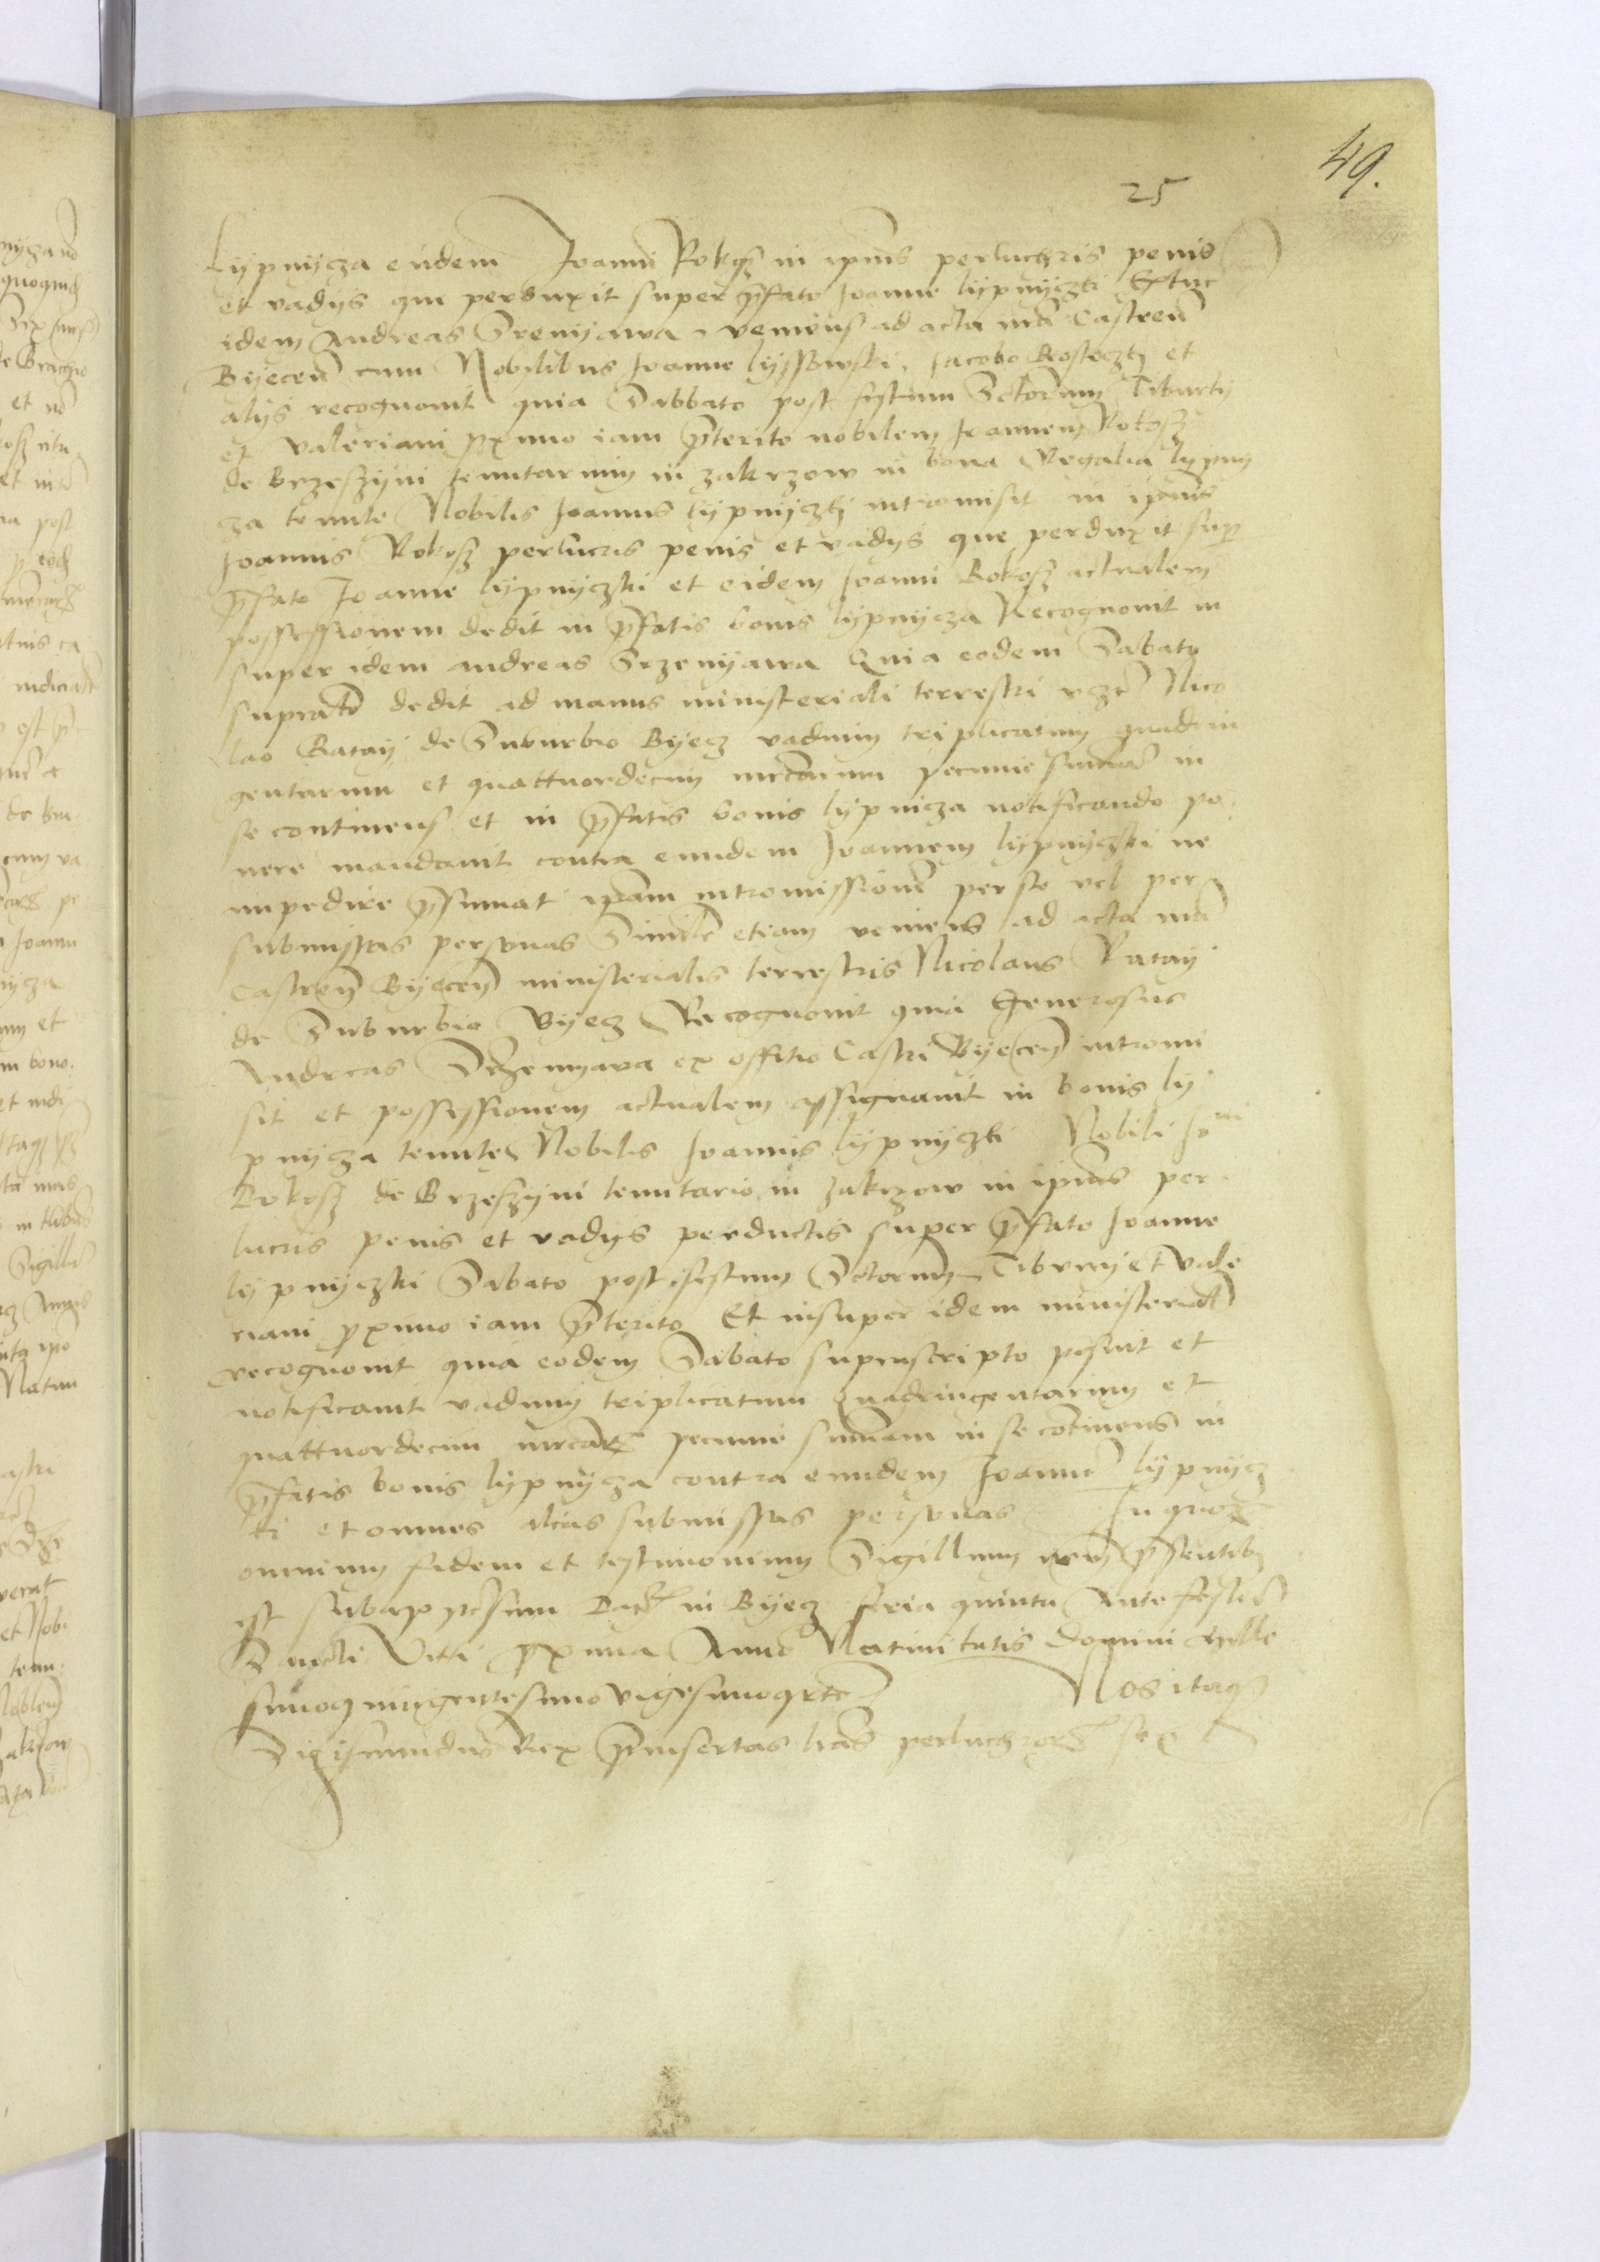 49.
25
Lypnycza eidem Joanni Rokosz in ipsius perluchris penis
et vadys que perduxit super p̄fato Joanne lypnyczki Ex tunc
idem Andreas Srenyawa veniens ad acta nr̄a Castren̄
Byecen̄ cum Nobilibus Joanne lyssowski, Jacobo Rosteczky et
alys recognovit quia Sabbato post festum Sctorum Tiburty
et Valeriani p̄ximo iam p̄terito nobilem Joannem Rokosz
de Brzeszyni tenutarium in zakrzow in bona Regalia lypny
cza tenute Nobilis Joannis lypnyczky intromisit in ipsius
Joannis Rokosz perlucris penis et vadys que perduxit sup̄
p̄fato Joanne lypnyczki et eidem Joanni Rokosz actualem
possessionem dedit in p̄fatis bonis lypnycza Recognovit in
super idem andreas Srzenyawa Quia eodem Sabato
suprato dedit ad manus ministeriali terrestri Nico
lao Ratay de Suburbio Byecz vadium triplicatum quadrin
gentarum et quattuordecim mrcarum pecunie sum̄am in
se continens et in p̄fatis bonis lypnicza notificando po
nere mandavit contra eundem Joannem lypnyczki ne
impedire p̄sumat ip̄am intromissionē per se vel per
submissas personas Simil̄r etiam veniens ad acta nr̄a
Castren̄ Byecen̄ ministerialis terrestris Nicolaus Ratay
de Suburbio Byecz Recognovit quia Generosus
Andreas Srzenyawa ex offitio Castri Byecen̄ intromi
sit et possessionem actualem assignavit in bonis ly
pnycza tenute Nobilis Joannis lypnyczki Nobili Joni
Rokosz de Brzeszyni tenutario in zakrzow in ipsius per
lucris penis et vadys perductis super p̄fato Joanne
lypnyczki Sabato post festum Sctorum Tiburcy et Vale
riani p̄ximo iam p̄terito Et insuper idem ministerial̄
recognovit quia eodem Sabato suprascripto posuit et
notificavit vadium triplicatum Quadringentarum et
quattuordecim mrcar̄ pecunie sum̄am in se cōtinens in
p̄fatis bonis lypnycza contra eundem Joannē lypnycz
ki et omnes alias submissas personas In quor̄
omnium fidem et testimonium Sigillum nr̄um p̄sentib9
est subappressum Dat̄ in Byecz feria quinta Ante festū
Sancti Viti p̄xima Anno Nativitatis Domini Mille
simoquingentesimo vigesimoqrto Nos itaq3
Sigismundus Rex p̄insertas lrās perluchror̄